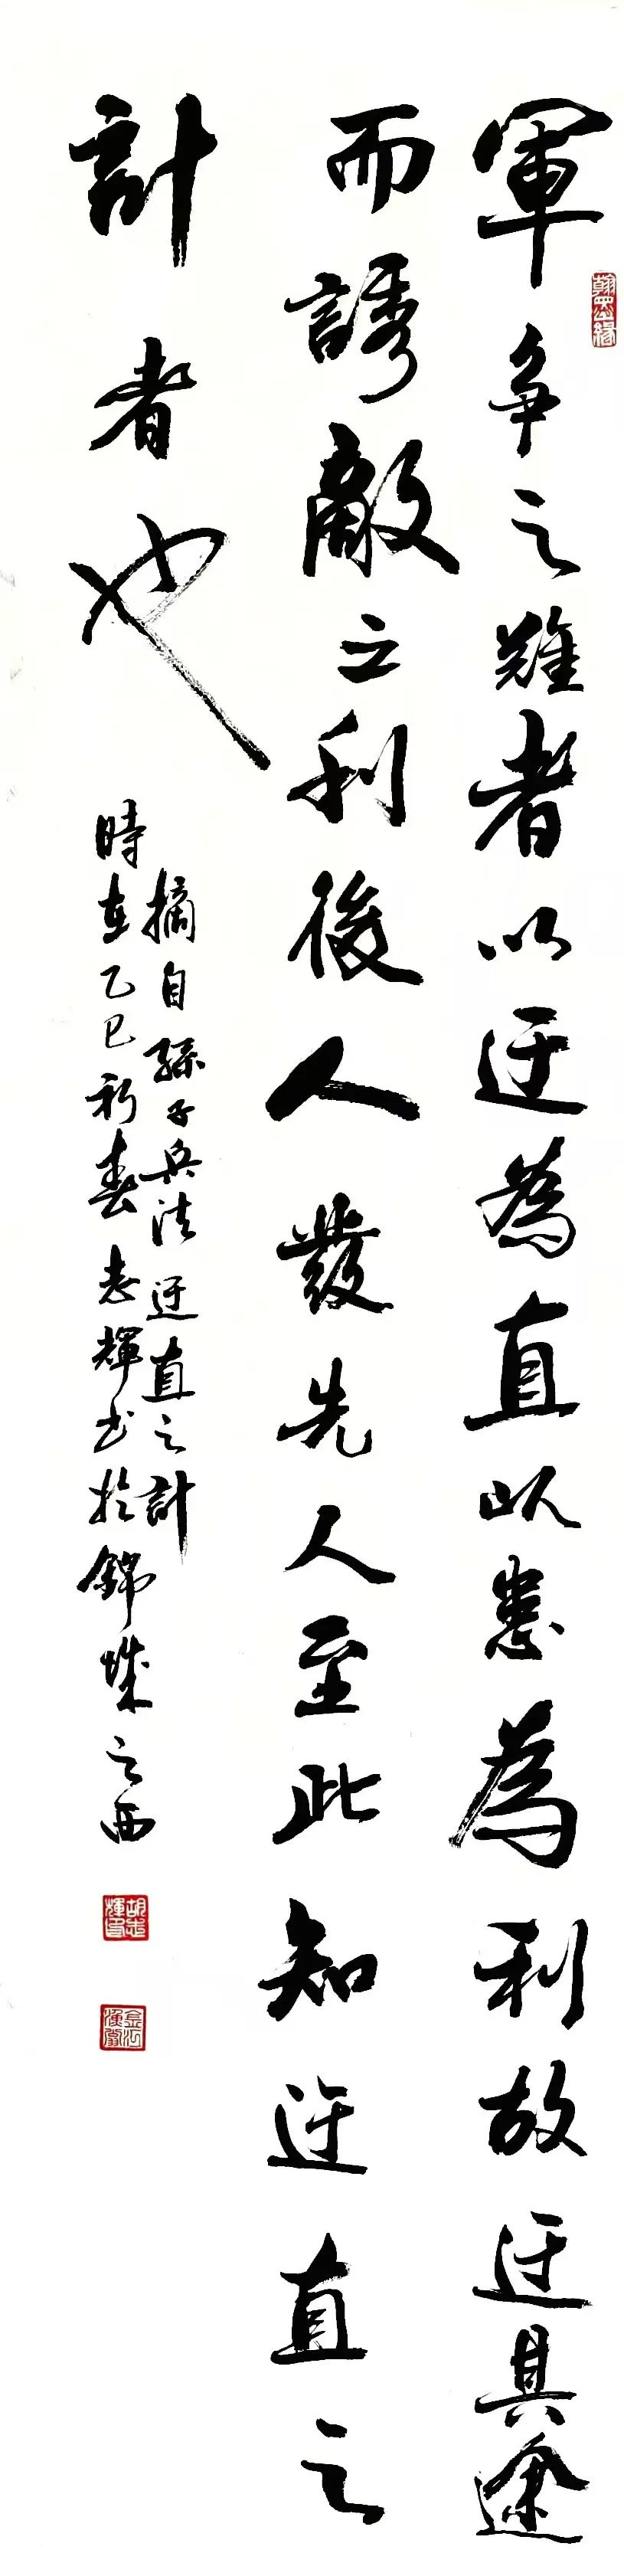 軍争之難者以迂為直以患為利故迂其途
而誘敵之利後人發先人至此知迂直之
計者也
摘自孫子兵法迂直之計
時在乙巳新春志輝书於錦城之西
翰墨缘